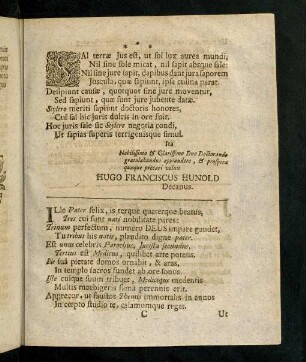 SAl terræ jus est, ut sol lux aurea mundi,
Nil sine sole micat, nil sapit absque sale:
Nil sine jure sapit, dapibus dant jura saporem
Juscula, quæ sapiunt, ipsa culina parat.
Desipiunt causæ, quotquot sine jure moventur,
Sed sapiunt, quæ sunt jure jubente datæ.
Scylero meriti sapiunt doctoris honores,
Cui sal hic juris dulcis in ore fuit.
Hoc juris sale sic Scylero negotia condi,
Ut sapias superis terrigenisque simul.
Ita
Nobilissimo & Clarissimo Dno Doctorando
gratulabundus applaudere, & prospera
quæque precari voluit
HUGO FRANCISCUS HUNOLD
Decanus.
ILle Pater felix, is terque quaterque beatus,
Tres cui sunt nati nobilitate pares:
Ternum perfectum, numero DEUS impare gaudet,
Tu tribus his natis, plaudito digne pater.
Est unus celebris Parochus, Jurista secundus,
Tertius est Medicus, quilibet arte potens.
Ille sua pietate domos ornabit, & aras,
In templo sacros fundet ab ore sonos.
Iste cuique suum tribuet, Medicusque medentis
Multis morbigeris fama perennis erit.
Apprecor, ut faustos Themis immortalis in annos
In cœpto studio te, calamumque regat.
C
Ut